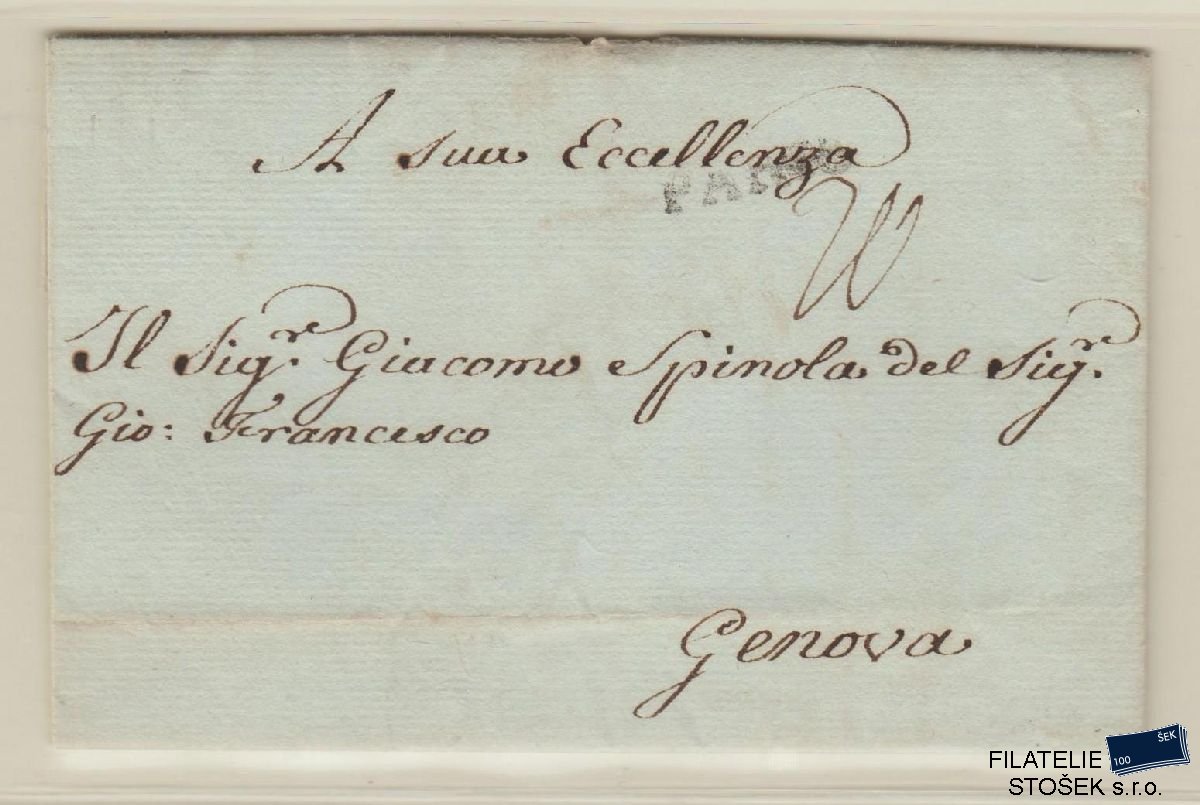 A sua Eccellenza
Il Sig.r Giacomo Spinola del Sig.r
Gio: Francesco
Genova
ŠEK
100
FILATELIE
STOŠEK s.r.o.